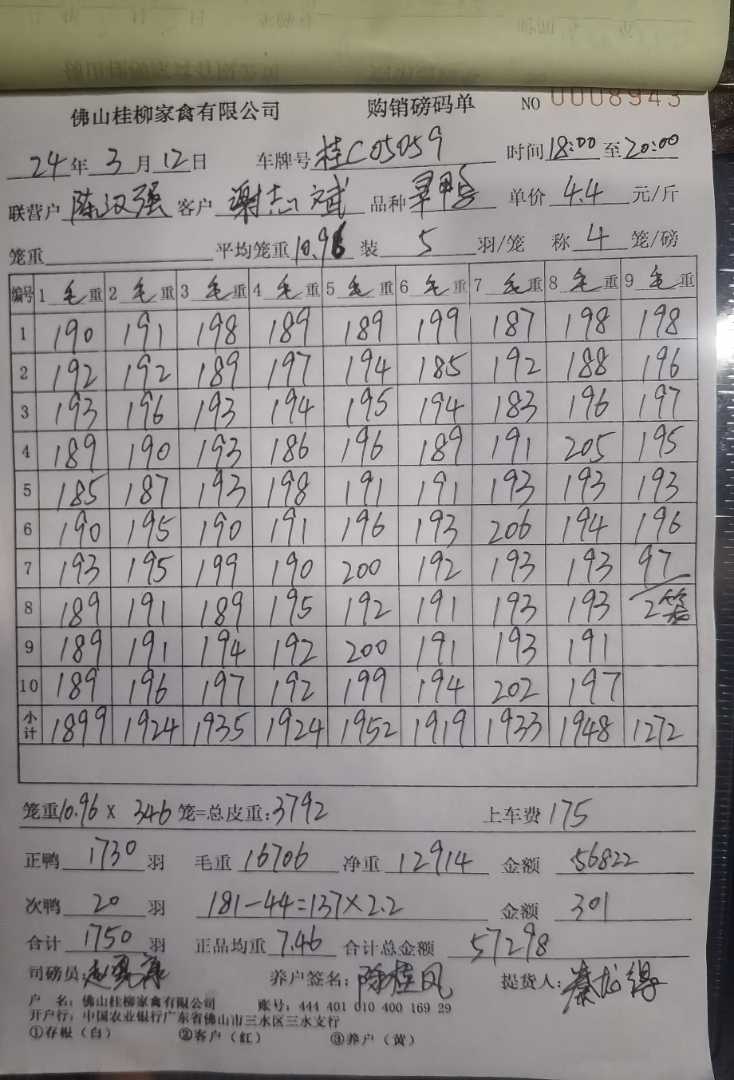 佛山桂柳家禽有限公司 购销磅码单 NO 0008943
24年3月12日 车牌号桂C05059 时间18:00至20:00
联营户陈汉强 客户谢志斌 品种 单价4.4元/斤
笼重 平均笼重10.96 装5羽/笼 称4笼/磅
编号 1毛重 2毛重 3毛重 4毛重 5毛重 6毛重 7毛重 8毛重 9毛重
1 190 191 198 189 189 199 187 198 198
2 192 192 189 197 194 185 192 188 196
3 193 196 193 194 195 194 183 196 197
4 189 190 193 186 196 189 191 205 195
5 185 187 193 198 191 191 193 193 193
6 190 195 190 191 196 193 206 194 196
7 193 195 199 190 200 192 193 193 97
8 189 191 189 195 192 191 193 193 2笼
9 189 191 194 192 200 191 193 191
10 189 196 197 192 199 194 202 197
小计 1899 1924 1935 1924 1952 1919 1933 1948 1272
笼重10.96 x 346笼=总皮重:3792 上车费175
正鸭1730羽 毛重16706 净重12914 金额56822
次鸭20羽 181-44=137x2.2 金额301
合计1750羽 正品均重7.46 合计总金额57298
司磅员: 养户签名:陈桂凤 提货人:
户 名: 佛山桂柳家禽有限公司 账号: 444 401 010 400 169 29
开户行: 中国农业银行广东省佛山市三水区三水支行
①存根(白) ②客户(红) ③养户(黄)